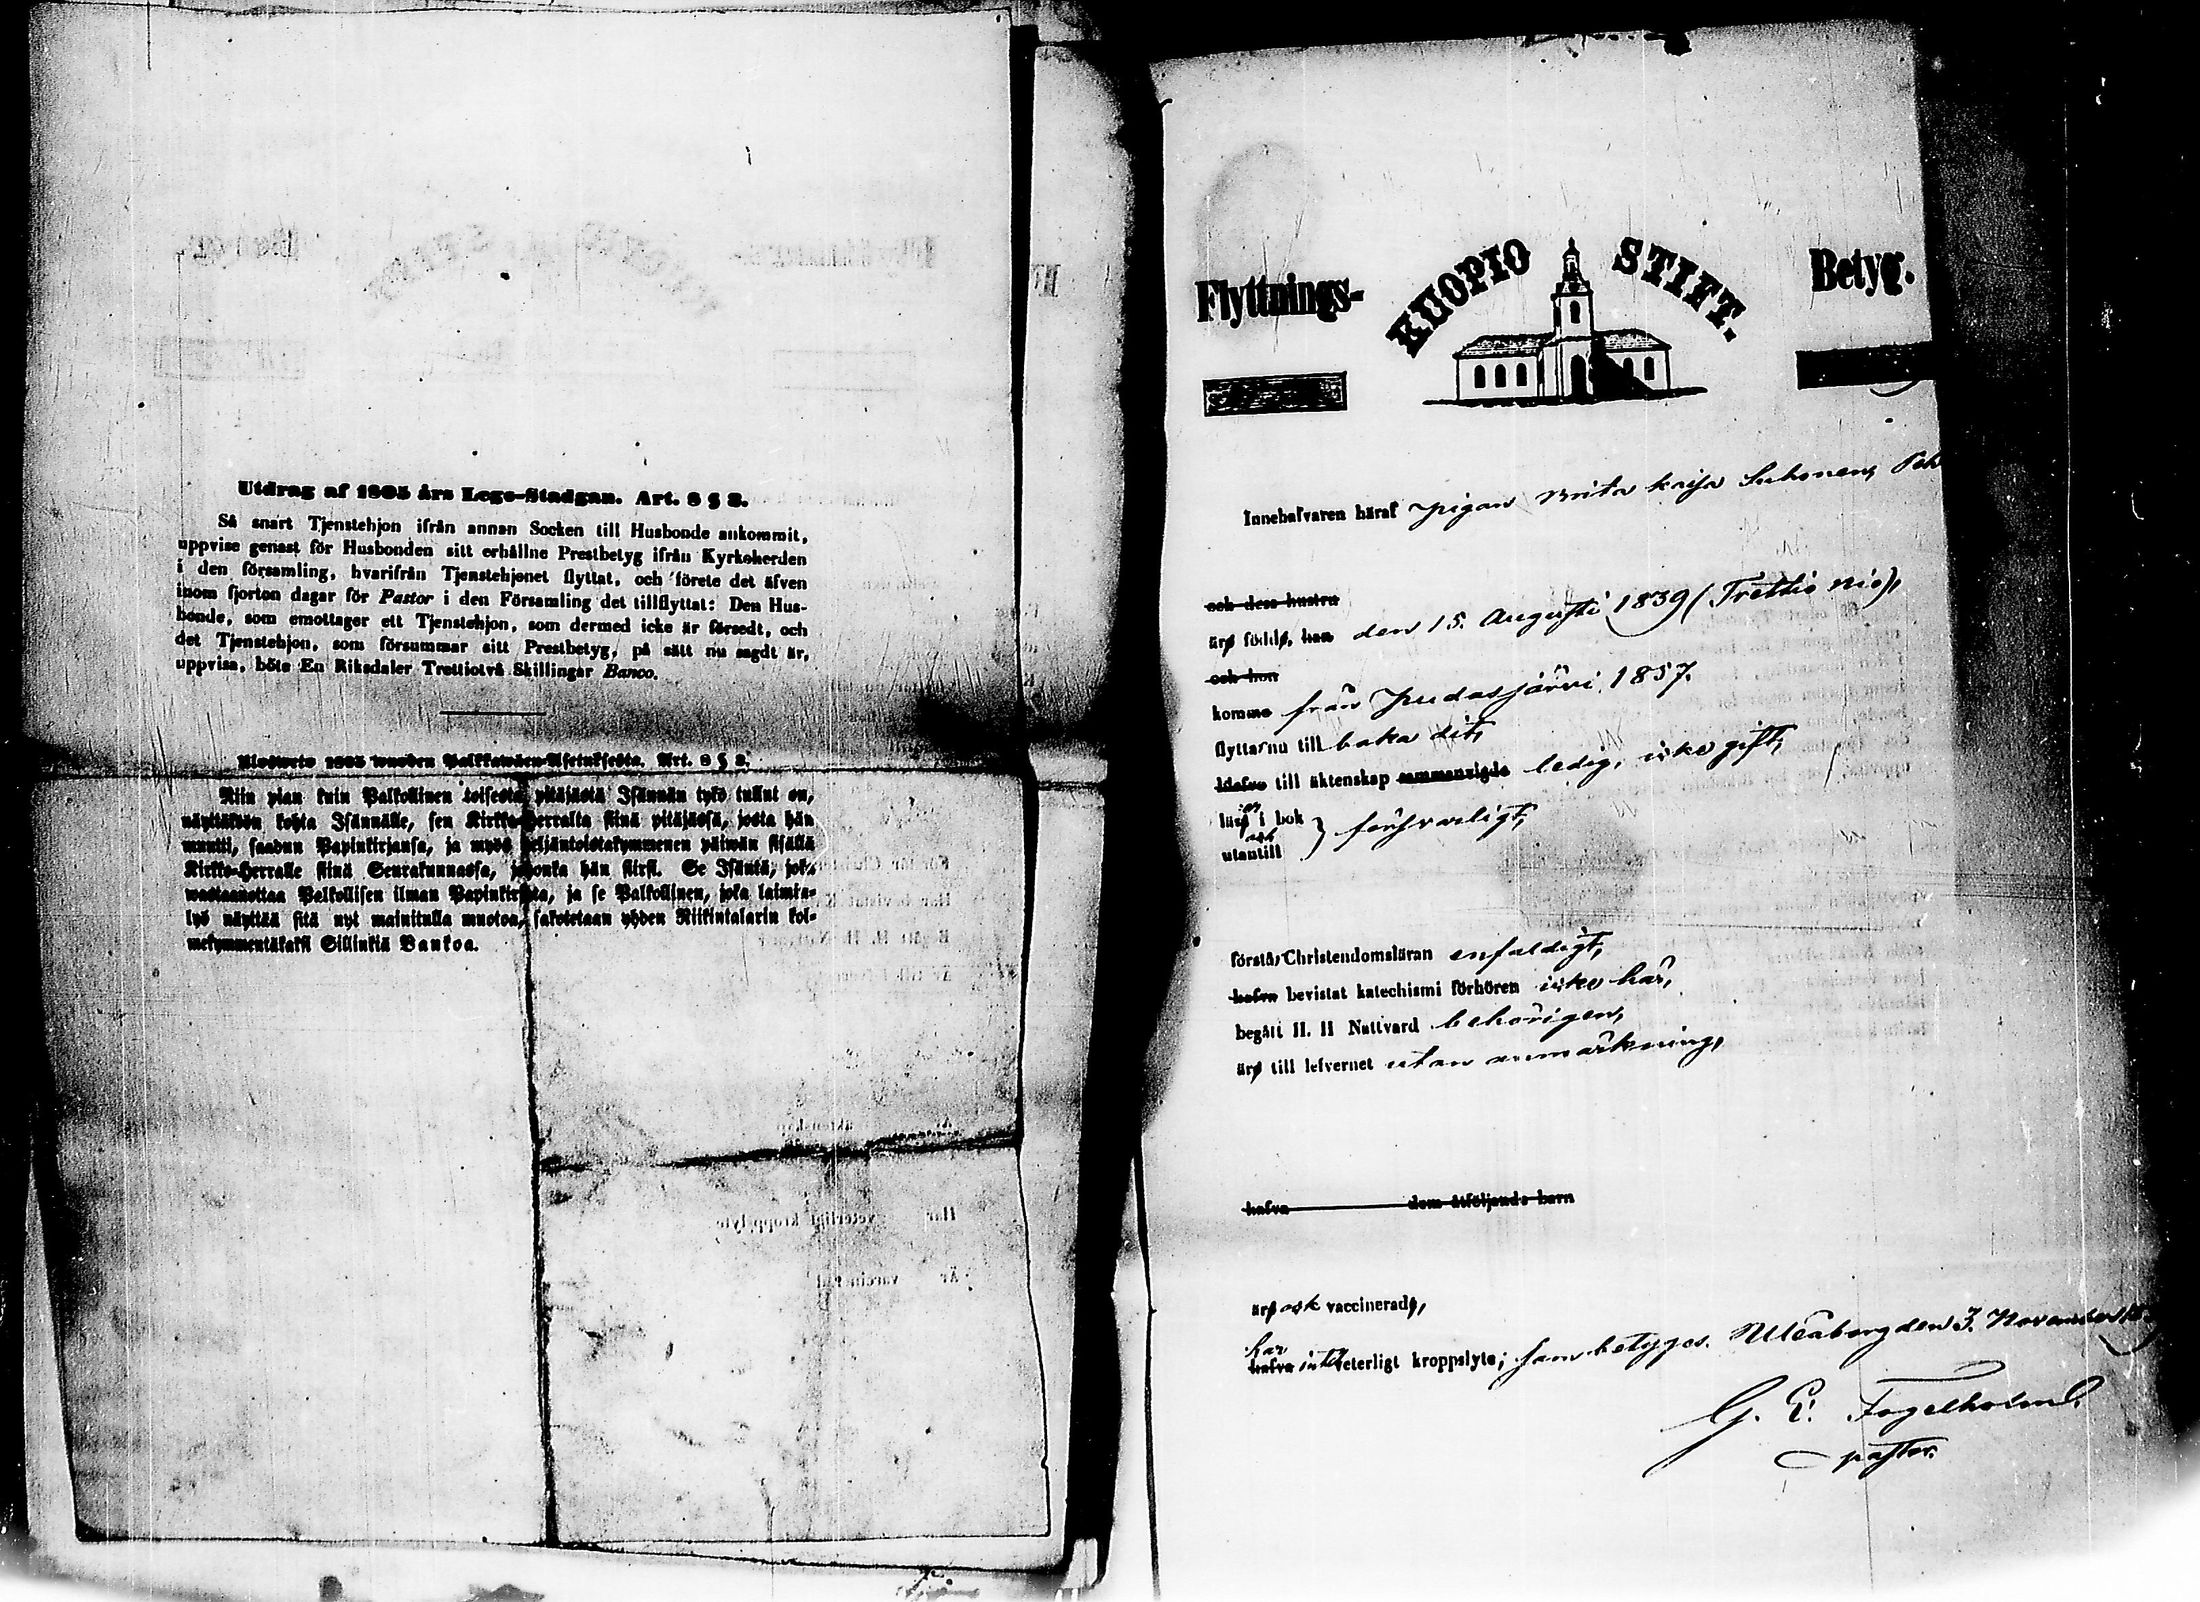 Utdrag af 1805 års Lego-Stadgan. Art. 8 § 2.
Så snart Tjenstehjon ifrån annan Socken till Husbonde ankommit,
uppvise genast för Husbonden sitt erhållne Prestbetyg ifrån Kyrkoherden
i den församling, hvarifrån Tjenstehjonet flyttat, och förete det äfven
inom fjorton dagar för Pastor i den Församling det tillflyttat: Den Hus-
bonde, som emottager ett Tjenstehjon, som dermed icke är försedt, och
det Tjenstehjon, som försummar sitt Prestbetyg, på sätt nu sagdt är,
uppvisa, böte En Riksdaler Trettiotvå Skillingar Banco.
Ulosweto 1805 wuoden Palkkawäen-Asetuksesta. Art. 8 § 2.
Niin pian kuin Palkollinen toisesta pitäjästä Isännän tykö tullut on,
näyttäkön kohta Isännälle, sen Kirkko-Herralta siinä pitäjässä, josta hän
muutti, saadun Papinkirjansa, ja myös neljäntoistakymmenen päiwän sisällä
Kirkko-Herralle siinä Seurakunnassa, johonka hän siirsi. Se Isäntä, joka
wastaanottaa Palkollisen ilman Papinkirjata, ja se Palkollinen, joka laimin-
lyö näyttää sitä nyt mainitulla muotoa, sakotetaan yhden Riikintalarin kol-
mekymmentäkaksi Sillinkiä Bankoa.
Flyttnings- KUOPIO STIFT. Betyg.
Innehafvaren häraf pigan Brita Kaisa Suhonen,
och dess hustru
äro födde, han den 15. Augusti 1839 (Trettio nio),
och hon
komme från Pudasjärvi 1857.
flyttar nu till baka dit,
hafva till äktenskap sammanvigde ledig, icke gift,
läser i bok
och försvarligt,
utantill
förstå Christendomsläran enfaldigt,
hafva bevistat katechismi förhören icke här,
begått H. H Nattvard behörigen,
äro till lefvernet utan anmärkning,
hafva dem åtföljande barn
äro ock vaccinerade,
har
hafva intet veterligt kroppslyte; som betygas. Uleåborg den 3. November
G. E. Fogelholm.
pastor.